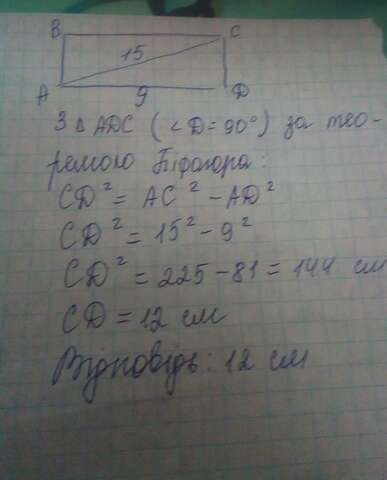 B C
15
A 9 D
З △ ADC (∠D = 90°) за тео-
ремою Піфагора:
CD² = AC² - AD²
CD² = 15² - 9²
CD² = 225 - 81 = 144 см
CD = 12 см
Відповідь: 12 см